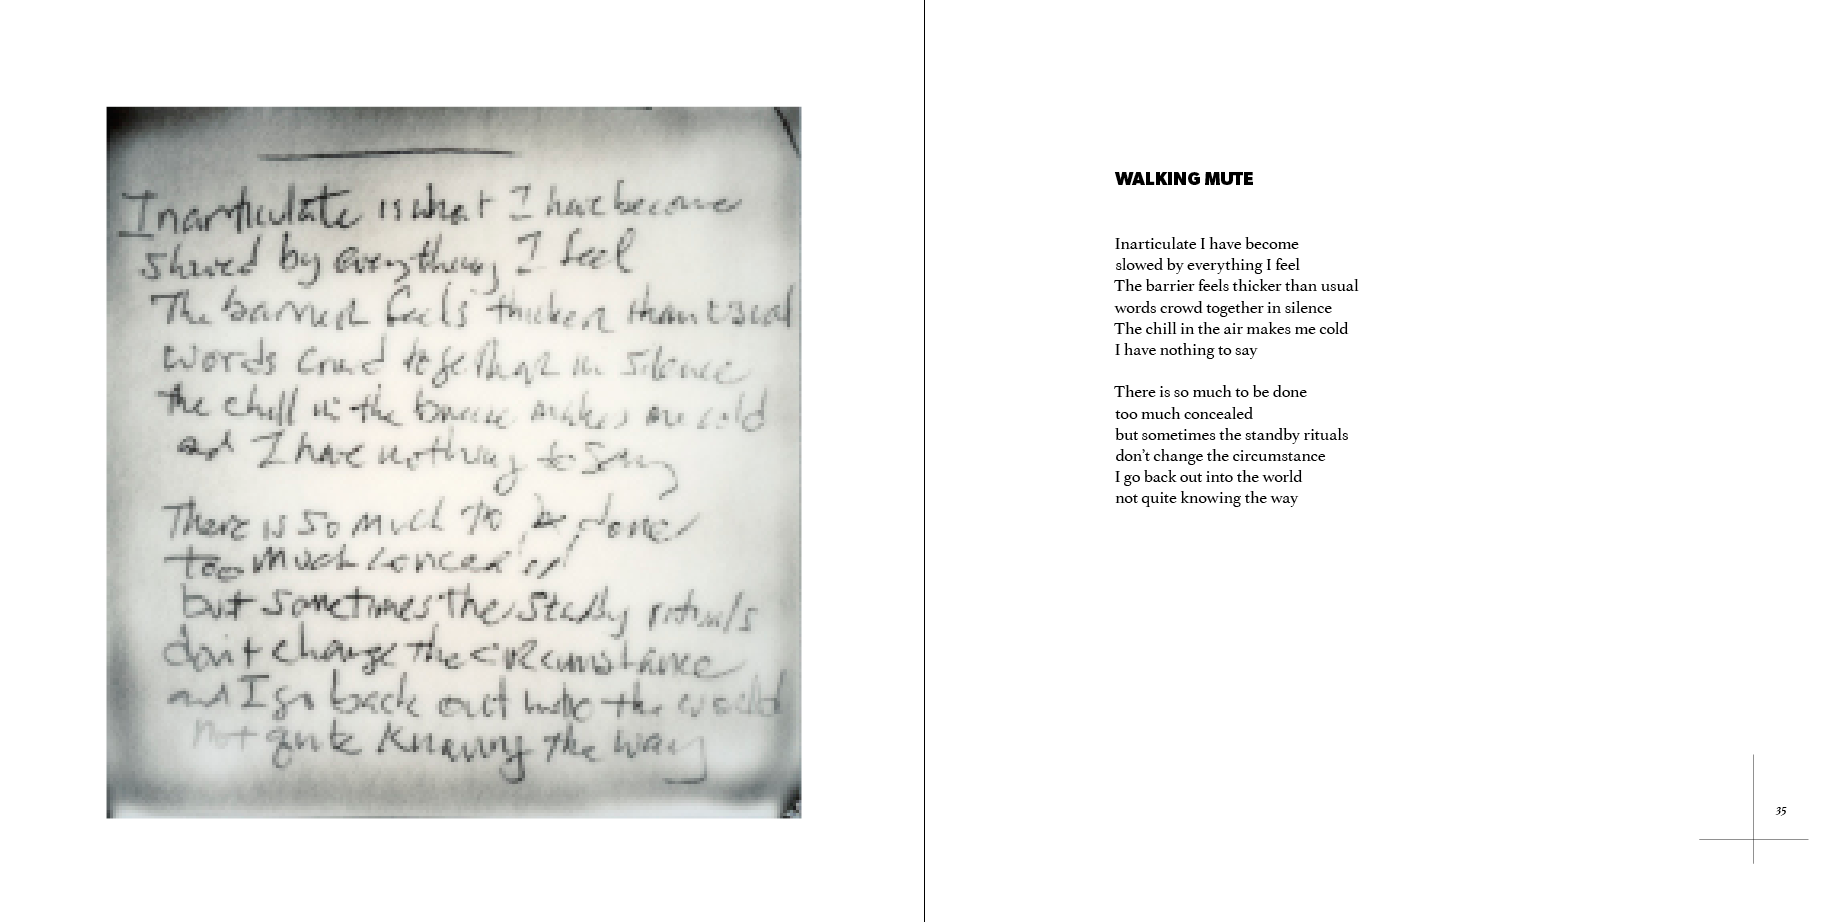 Inarticulate is what I have become
slowed by everything I feel
The barrier feels thicker than usual
words crowd together in silence
the chill in the breeze makes me cold
and I have nothing to say
There is so much to be done
too much concealed
but sometimes the standby rituals
don't change the circumstance
and I go back out into the world
not quite knowing the way
WALKING MUTE
Inarticulate I have become
slowed by everything I feel
The barrier feels thicker than usual
words crowd together in silence
The chill in the air makes me cold
I have nothing to say
There is so much to be done
too much concealed
but sometimes the standby rituals
don’t change the circumstance
I go back out into the world
not quite knowing the way
35